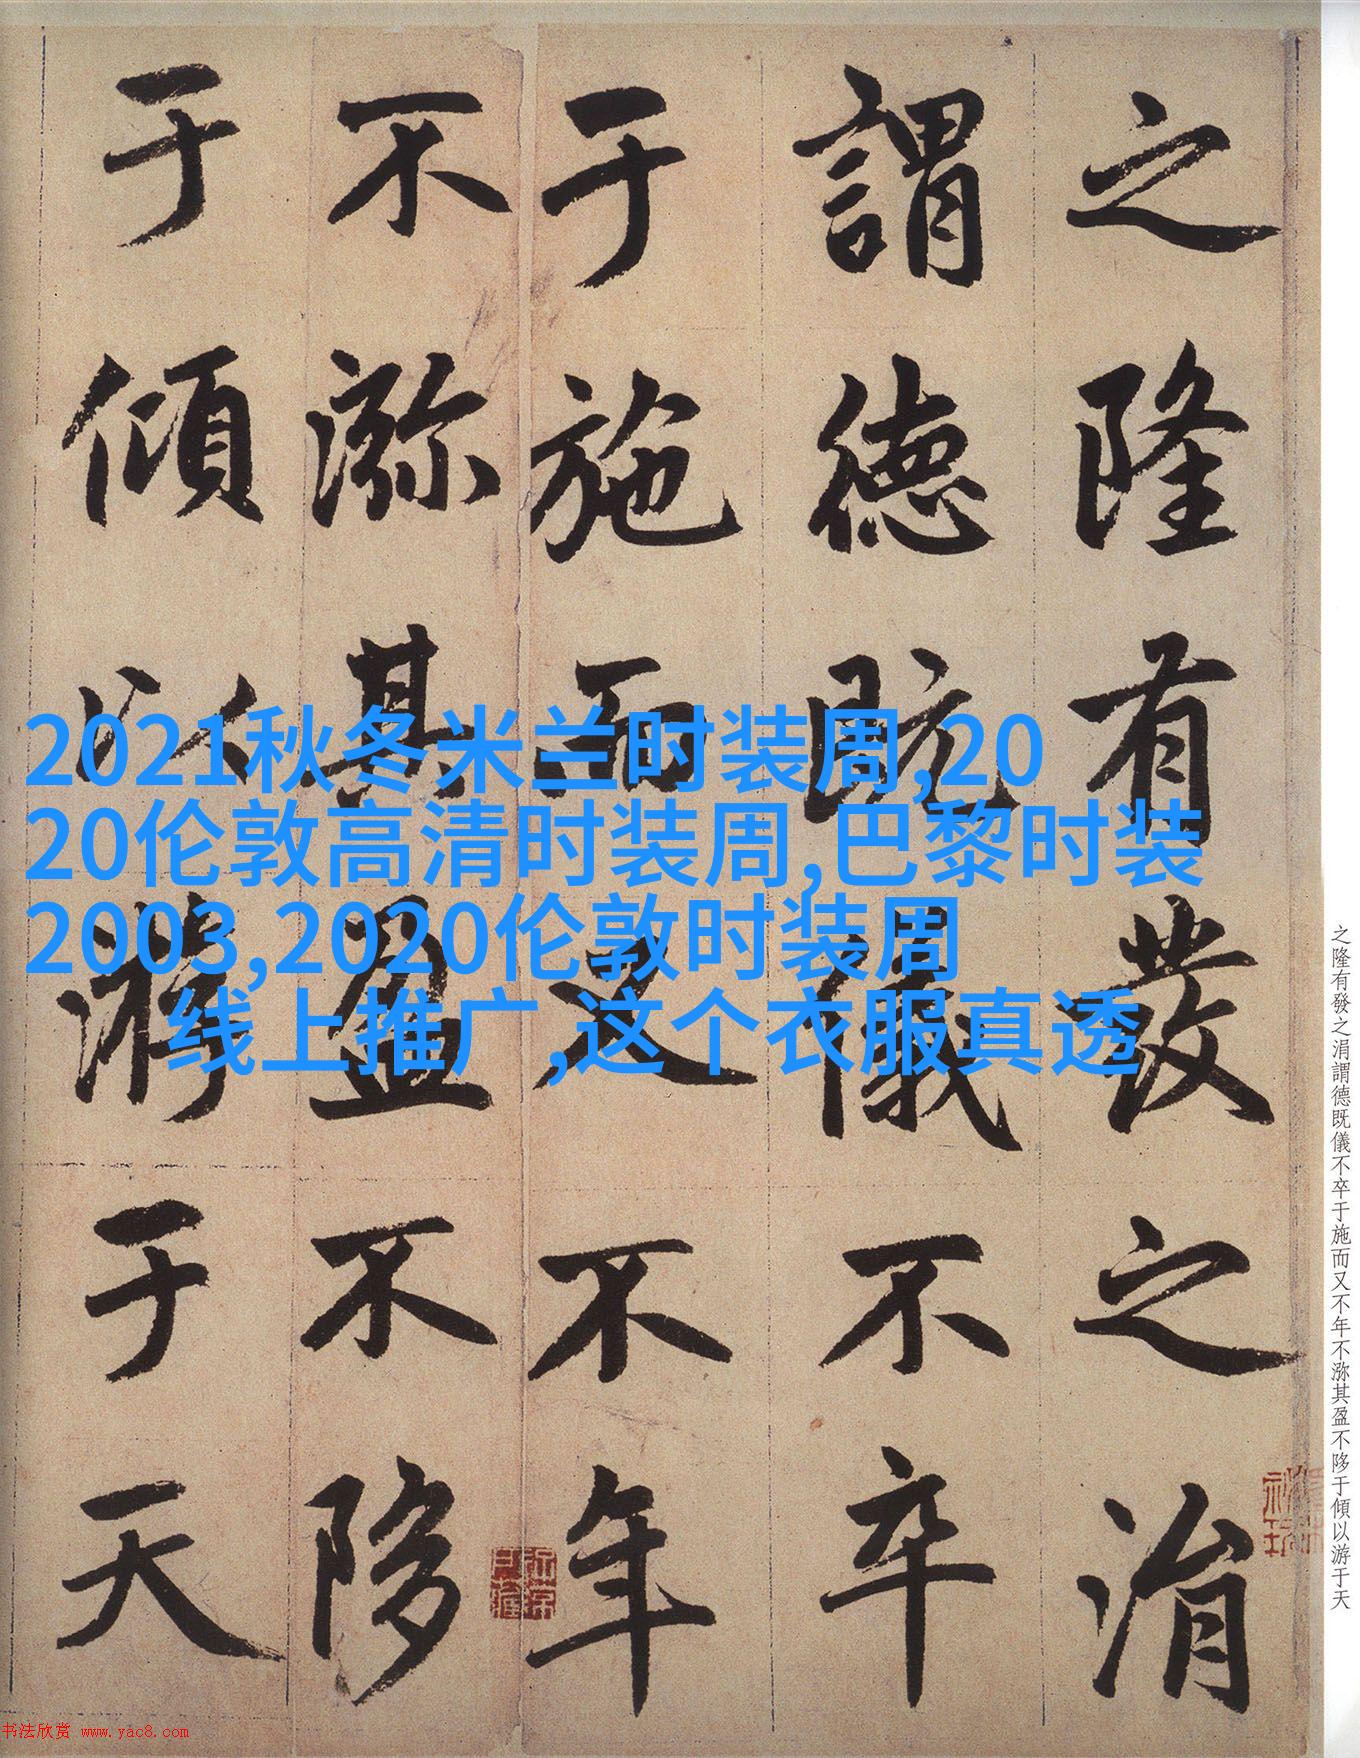 之隆有發之涓
謂德既儀不卒
于施而又不年
不㳽其盈不陊
于傾以游于天
2021秋冬米兰时装周,20
20伦敦高清时装周,巴黎时装
2003,2020伦敦时装周
线上推广,这个衣服真透
之隆有發之涓謂德既儀不卒于施而又不年不㳽其盈不陊于傾以游于天
书法欣赏 www.yac8.com